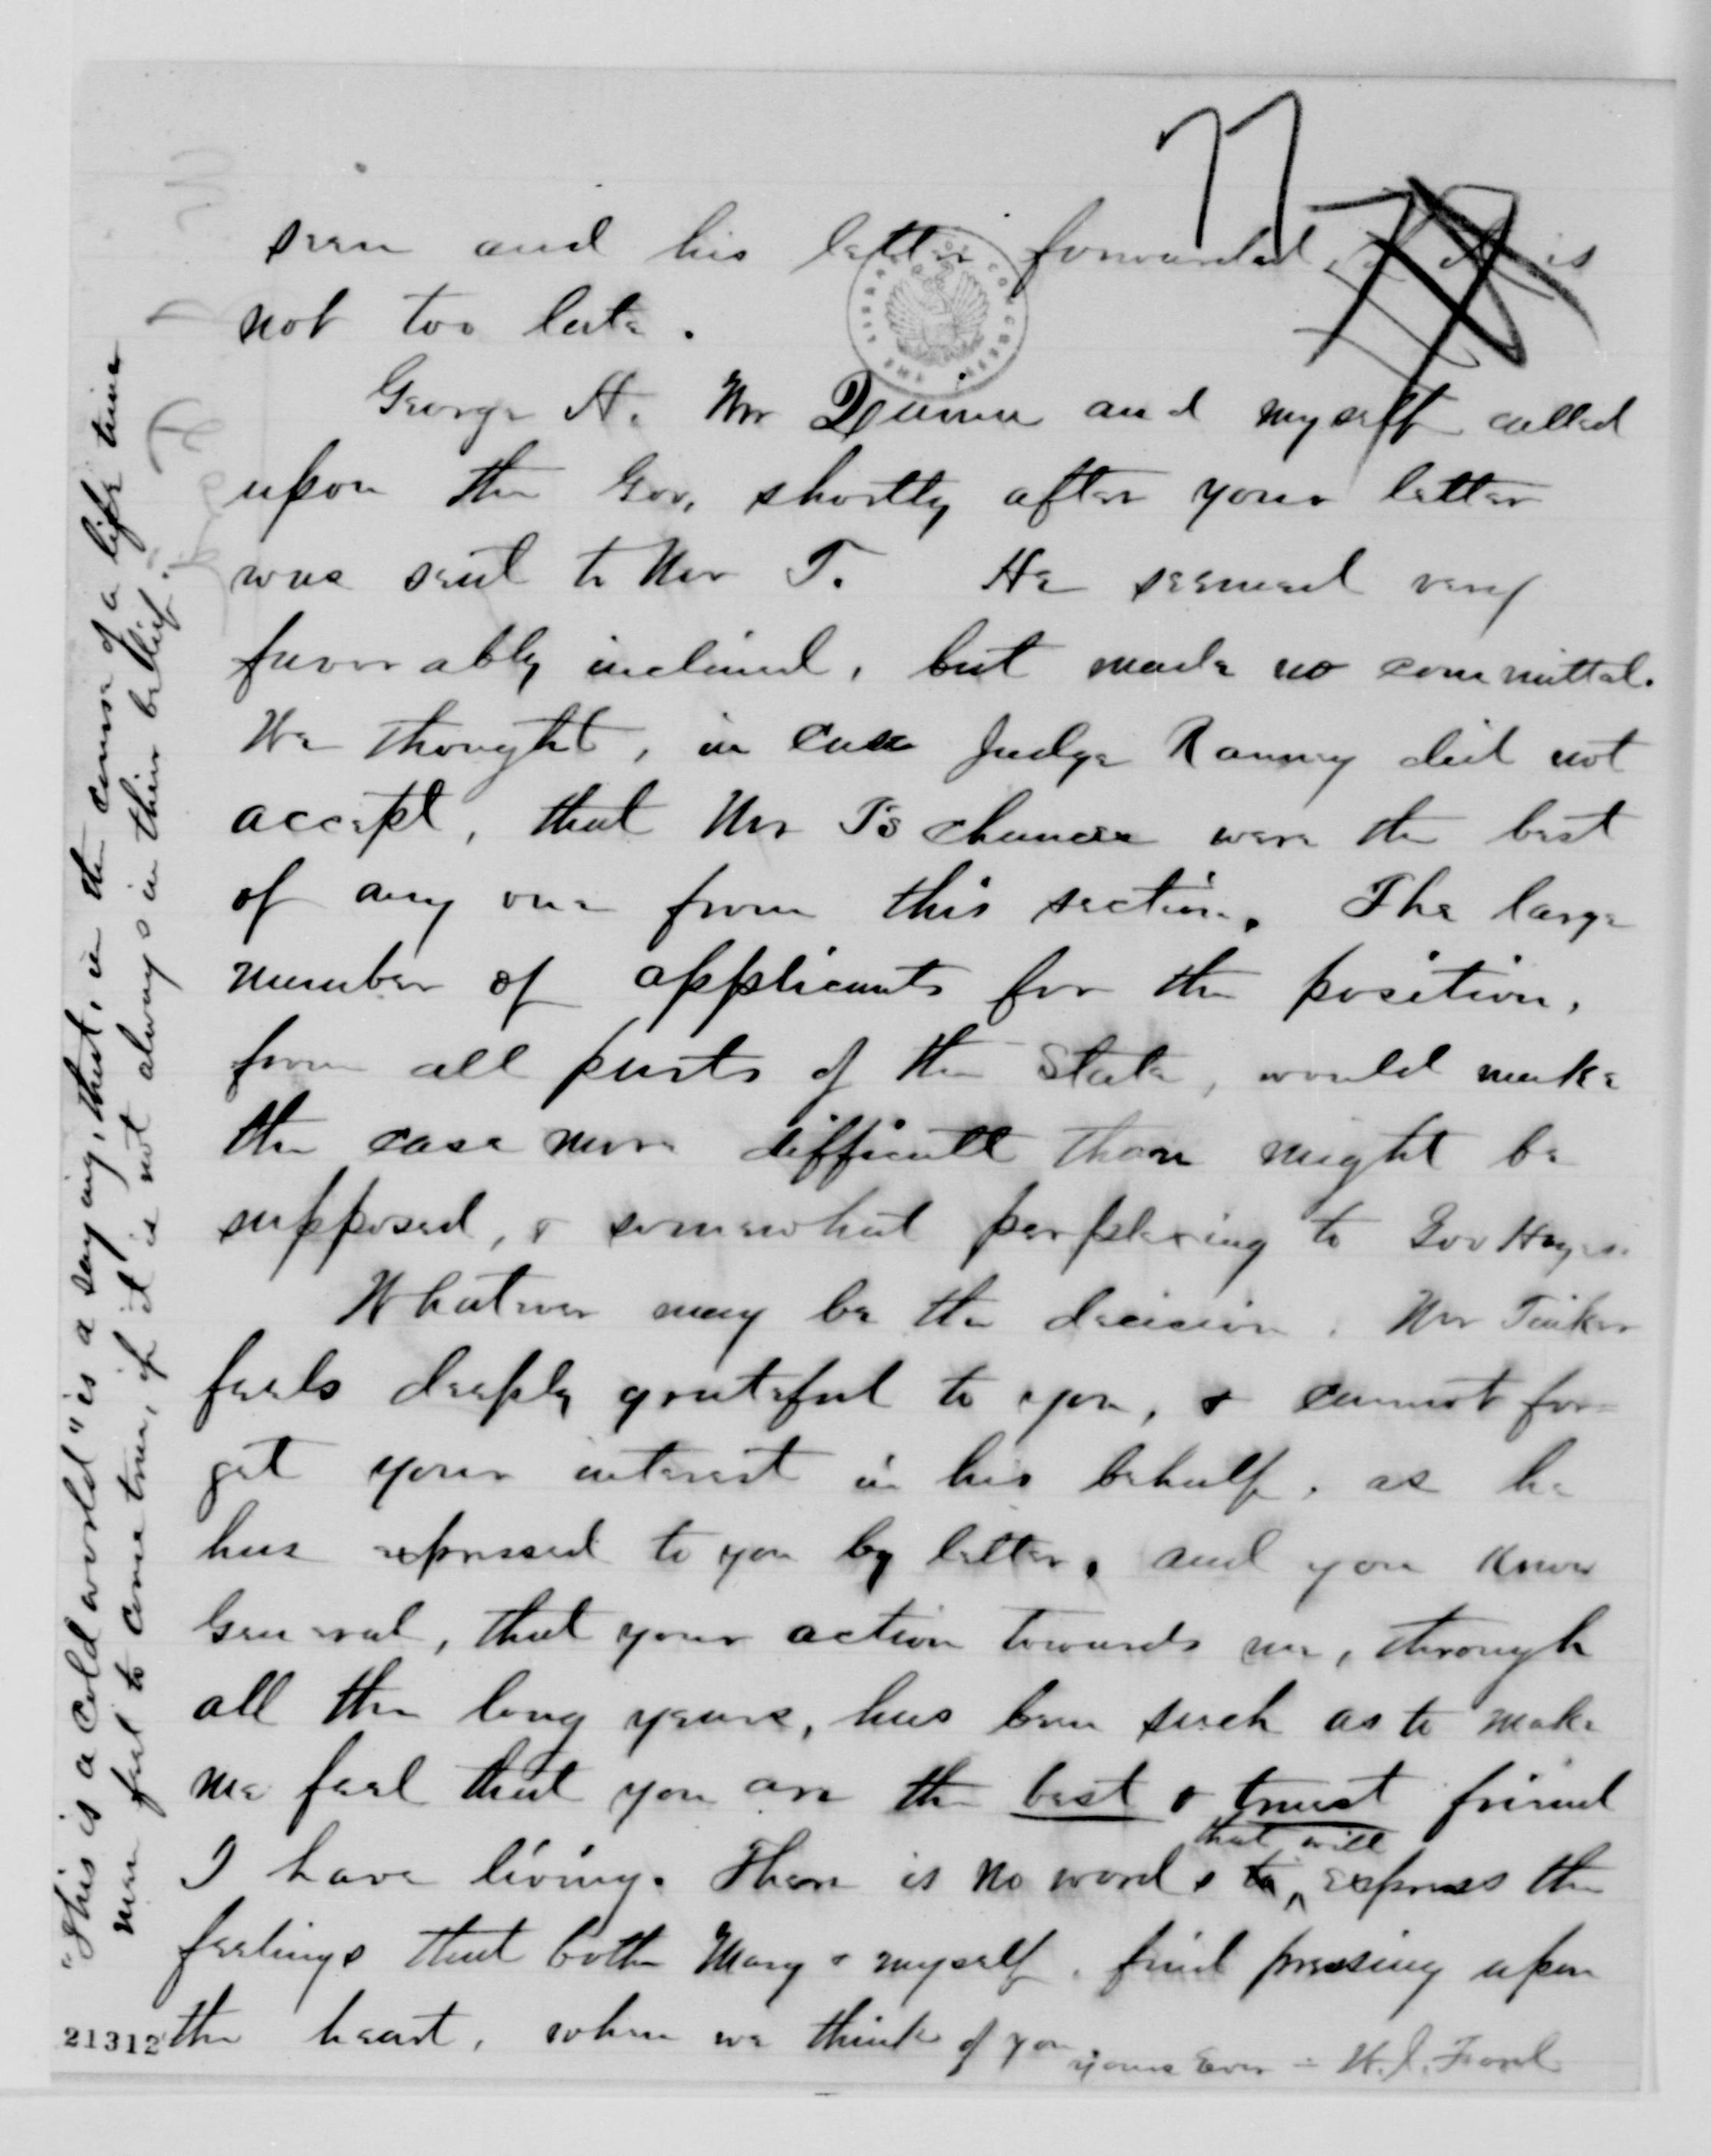 77
seen and his letter forwarded, if it is
not too late.
George A. Mr and myself called
upon the Gov, shortly after your letter
was sent to Mr T. He seemed very
favorably inclined, but made no committal.
We thought, in case Judge Ranney did not
accept, that Mr T's chances were the best
of any one from this section. The large
number of applicants for the position,
from all parts of the State, would make
the case more difficult than might be
supposed, & somewhat perplexing to Gov Hayes.
Whatever may be the decision, Mr Tinker
feels deeply grateful to you, & cannot for-
get your interest in his behalf, as he
has expressed to you by letter, and you know
General, that your action towards me, through
all the long years, has been such as to make
me feel that you are the best & truest friend
that will
I have living. There is no words to ^ express the
feelings that both Mary & myself, find pressing upon
the heart, when we think of you
yours Ever - W. J. Ford
21312
"This is a cold world" is a saying, that, in the course of a life time
men feel to come true, if it is not always in their belief.
THE LIBRARY OF CONGRESS